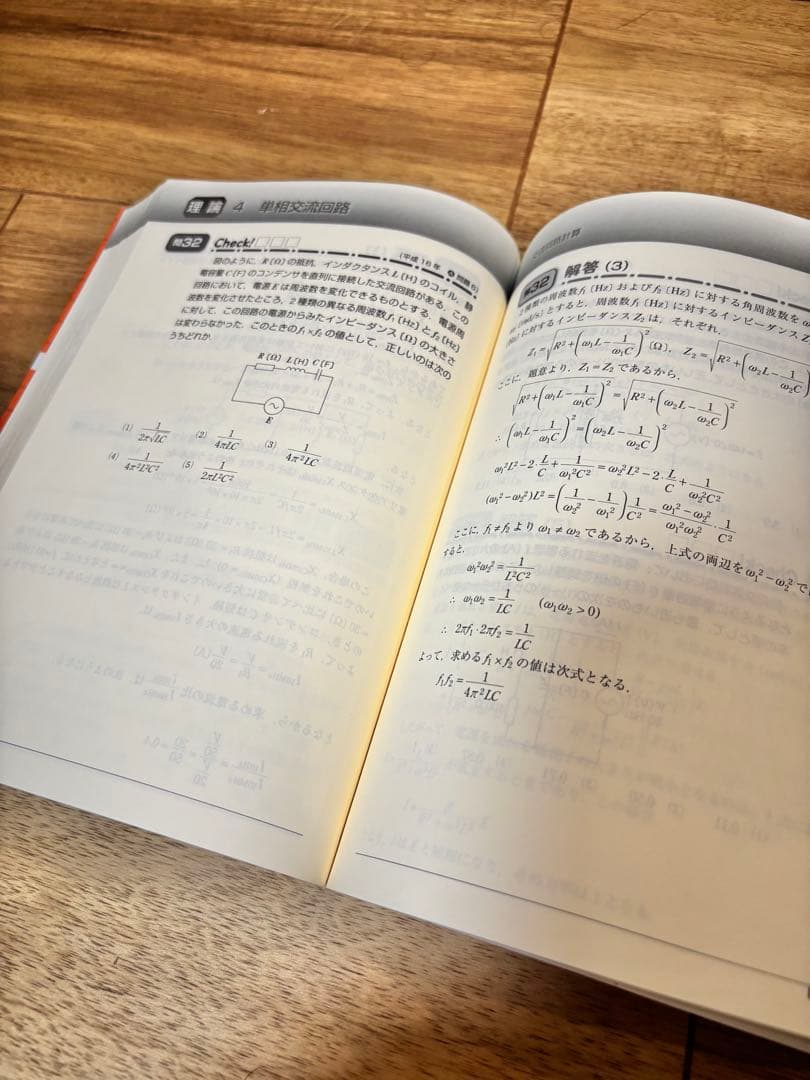 理論 4 単相交流回路
問32 Check! □□□ (平成16年 A問題6)
図のように, R〔Ω〕の抵抗, インダクタンスL〔H〕のコイル, 静
電容量C〔F〕のコンデンサを直列に接続した交流回路がある. この
回路において, 電源Eは周波数を変化できるものとする. 電源周
波数を変化させたところ, 2種類の異なる周波数f₁〔Hz〕とf₂〔Hz〕
に対して, この回路の電源からみたインピーダンス〔Ω〕の大きさ
は変わらなかった. このときのf₁×f₂の値として, 正しいのは次の
うちどれか.
R〔Ω〕 L〔H〕 C〔F〕
E
(1) 1/(2π√LC) (2) 1/(4πLC) (3) 1/(4π²LC)
(4) 1/(4π²L²C²) (5) 1/(2πL²C²)
問32 解答 (3)
2種類の周波数f₁〔Hz〕およびf₂〔Hz〕に対する角周波数をω
〔rad/s〕とすると, 周波数f₁〔Hz〕に対するインピーダンスZ
〔Hz〕に対するインピーダンスZ₂は, それぞれ,
Z₁=√(R²+(ω₁L−1/(ω₁C))²) 〔Ω〕, Z₂=√(R²+(ω₂L−1/(ω₂C))²)
ここに, 題意より, Z₁=Z₂であるから,
√(R²+(ω₁L−1/(ω₁C))²)=√(R²+(ω₂L−1/(ω₂C))²)
∴ (ω₁L−1/(ω₁C))²=(ω₂L−1/(ω₂C))²
ω₁²L²−2·L/C+1/(ω₁²C²)=ω₂²L²−2·L/C+1/(ω₂²C²)
(ω₁²−ω₂²)L²=(1/ω₂²−1/ω₁²)1/C²=(ω₁²−ω₂²)/(ω₁²ω₂²)·1/C²
ここに, f₁≠f₂よりω₁≠ω₂であるから, 上式の両辺をω₁²−ω₂²で
すると,
ω₁²ω₂²=1/(L²C²)
∴ ω₁ω₂=1/(LC) (ω₁ω₂>0)
∴ 2πf₁·2πf₂=1/(LC)
よって, 求めるf₁×f₂の値は次式となる.
f₁f₂=1/(4π²LC)